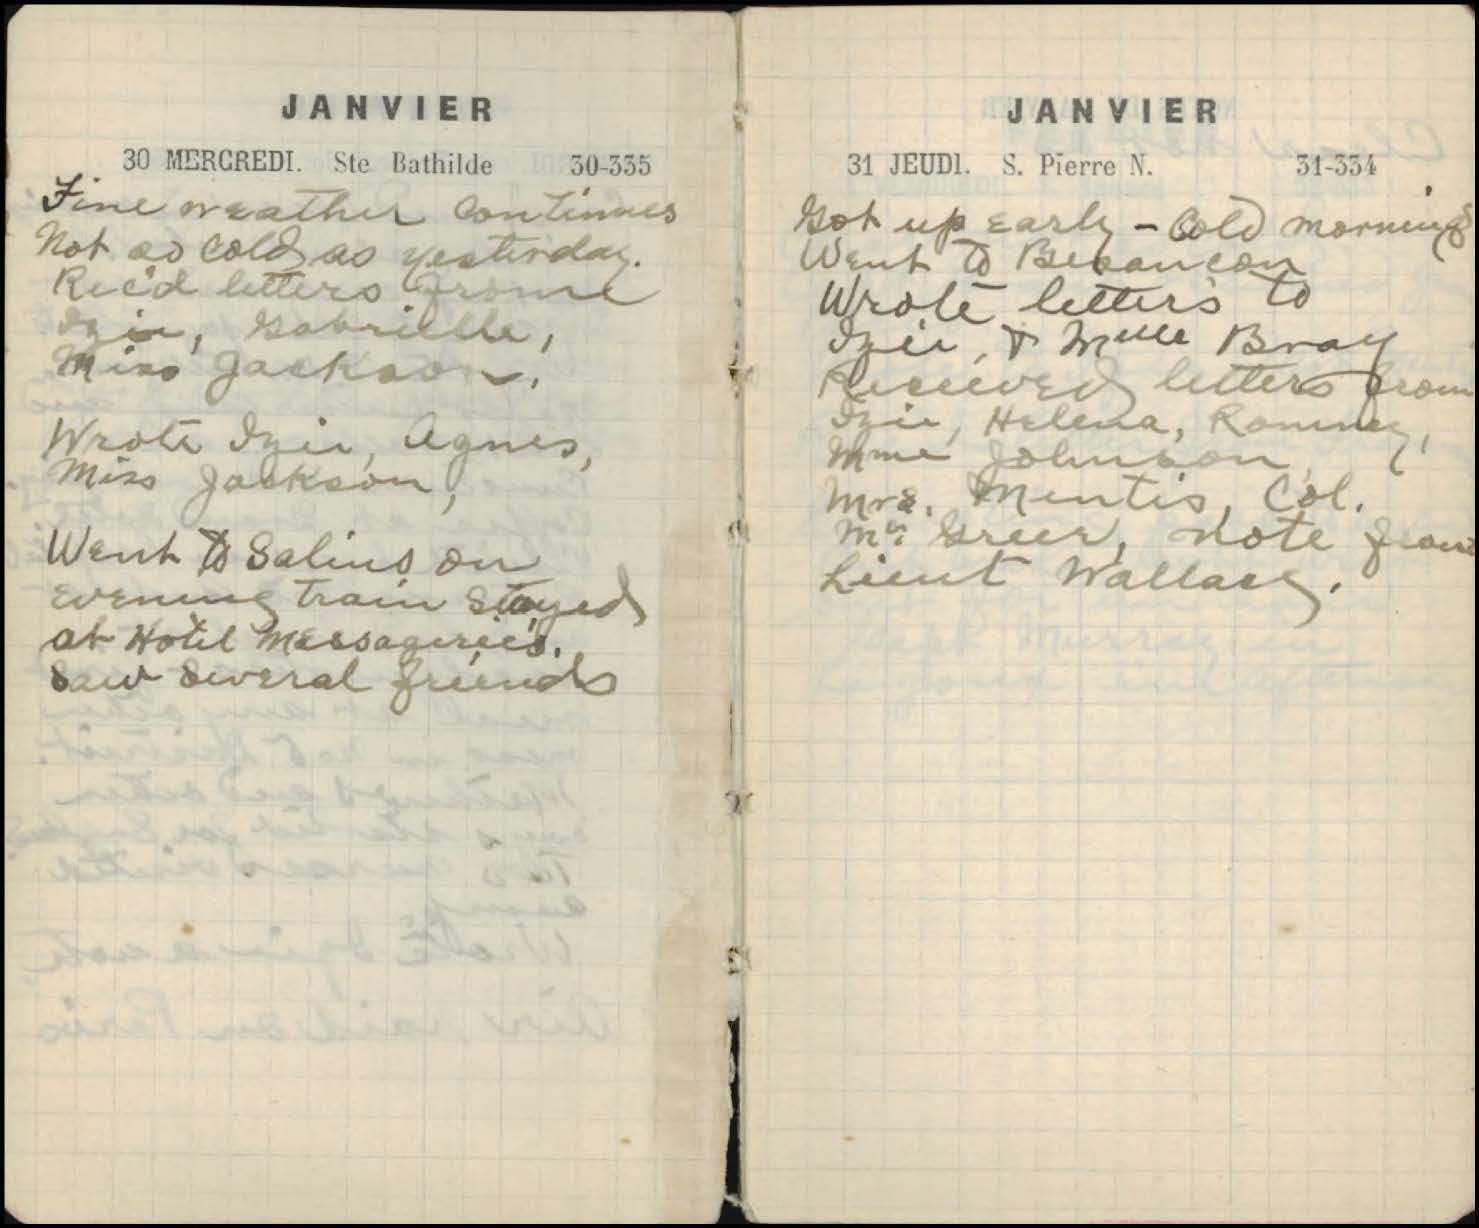 JANVIER
30 MERCREDI. Ste Bathilde 30-335
Fine weather continues
Not so cold as yesterday.
Rec'd letters from
Izie, Gabrielle,
Miss Jackson.
Wrote Izie, Agnes,
Miss Jackson,
Went to Salins on
evening train stayed
at Hotel Messageries.
Saw several friends
JANVIER
31 JEUDI. S. Pierre N. 31-334
Got up early - Cold morning
Went to Besancon
Wrote letters to
Izie, & Mlle Bray
Received letters from
Izie, Helena, Romney,
Mme Johnson,
Mrs. Mentis, Col.
Mc Greer, Note from
Lieut Wallace.